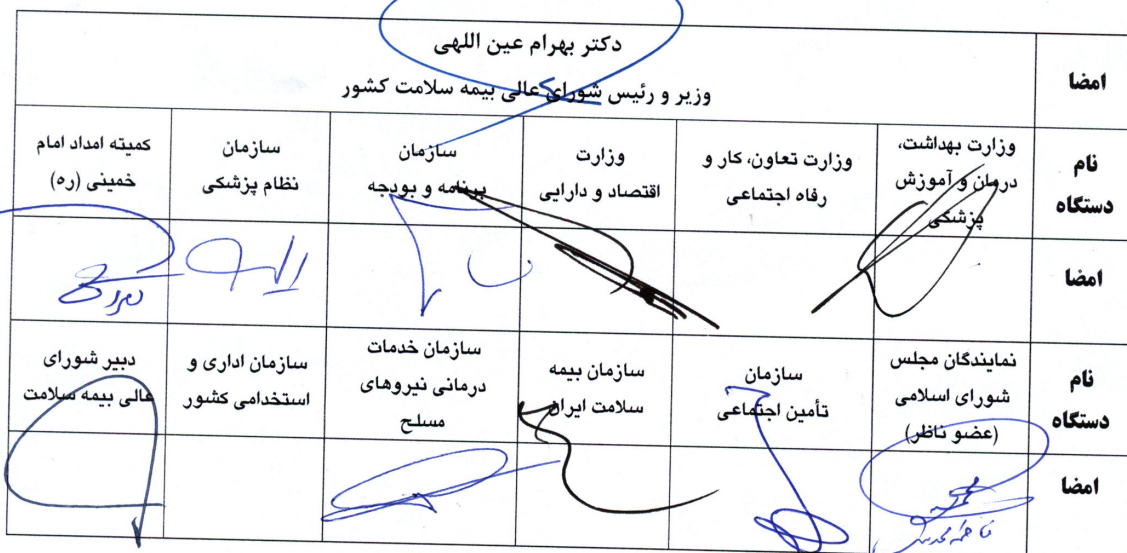 امضا
دکتر بهرام عین اللهی
وزیر و رئیس شورای عالی بیمه سلامت کشور
نام دستگاه
وزارت بهداشت،
درمان و آموزش
پزشکی
وزارت تعاون، کار و
رفاه اجتماعی
وزارت
اقتصاد و دارایی
سازمان
برنامه و بودجه
سازمان
نظام پزشکی
کمیته امداد امام
خمینی (ره)
امضا
نام
دستگاه
نمایندگان مجلس
شورای اسلامی
(عضو ناظر)
سازمان
تأمین اجتماعی
سازمان بیمه
سلامت ایران
سازمان خدمات
درمانی نیروهای
مسلح
سازمان اداری و
استخدامی کشور
دبیر شورای
عالی بیمه سلامت
امضا